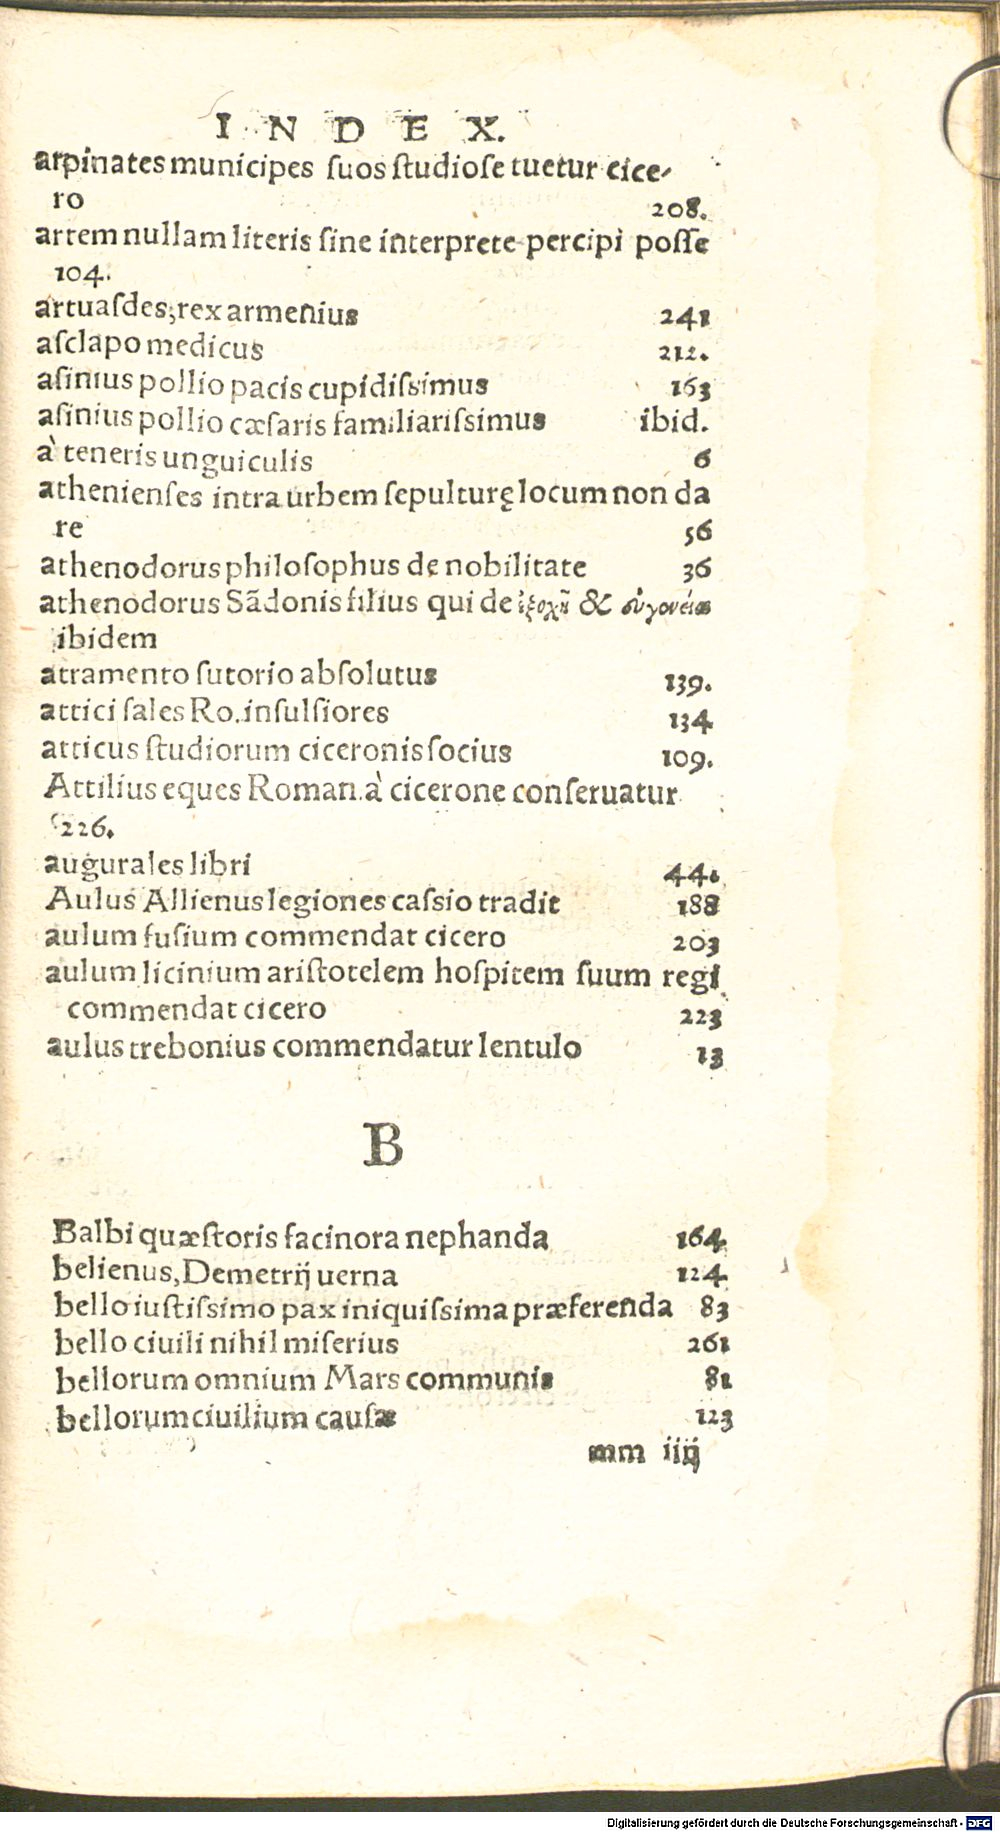 INDEX.
arpinates municipes suos studiose tuetur cice-
ro 208.
artem nullam literis sine interprete percipi posse
104.
artuasdes, rex armenius 241
asclapo medicus 212.
asinius pollio pacis cupidissimus 163
asinius pollio cæsaris familiarissimus ibid.
à teneris unguiculis 6
athenienses intra urbem sepulturę locum non da
re 56
athenodorus philosophus de nobilitate 36
athenodorus Sãdonis filius qui de &
ibidem
atramento sutorio absolutus 139.
attici sales Ro. insulsiores 134
atticus studiorum ciceronis socius 109.
Attilius eques Roman. à cicerone conseruatur
226.
augurales libri 44.
Aulus Allienus legiones cassio tradit 188
aulum fusium commendat cicero 203
aulum licinium aristotelem hospitem suum regi
commendat cicero 223
aulus trebonius commendatur lentulo 13
B
Balbi quæstoris facinora nephanda 164
belienus, Demetrij uerna 124
bello iustissimo pax iniquissima præferenda 83
bello ciuili nihil miserius 261
bellorum omnium Mars communis 81
bellorum ciuilium causæ 123
mm iiij
Digitalisierung gefördert durch die Deutsche Forschungsgemeinschaft - DFG